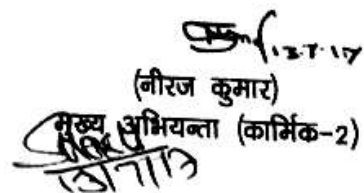 13.7.17
(नीरज कुमार)
मुख्य अभियन्ता (कार्मिक-2)
13/7/17